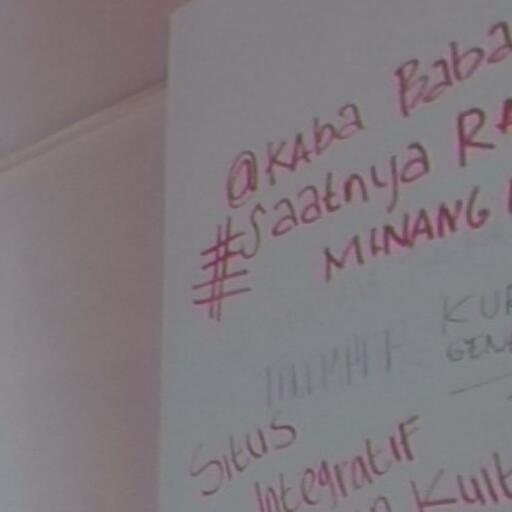 @KAba Baba
#Saatnya RA
MINANG
KUR
GENE
Situs
Integratif
Kult